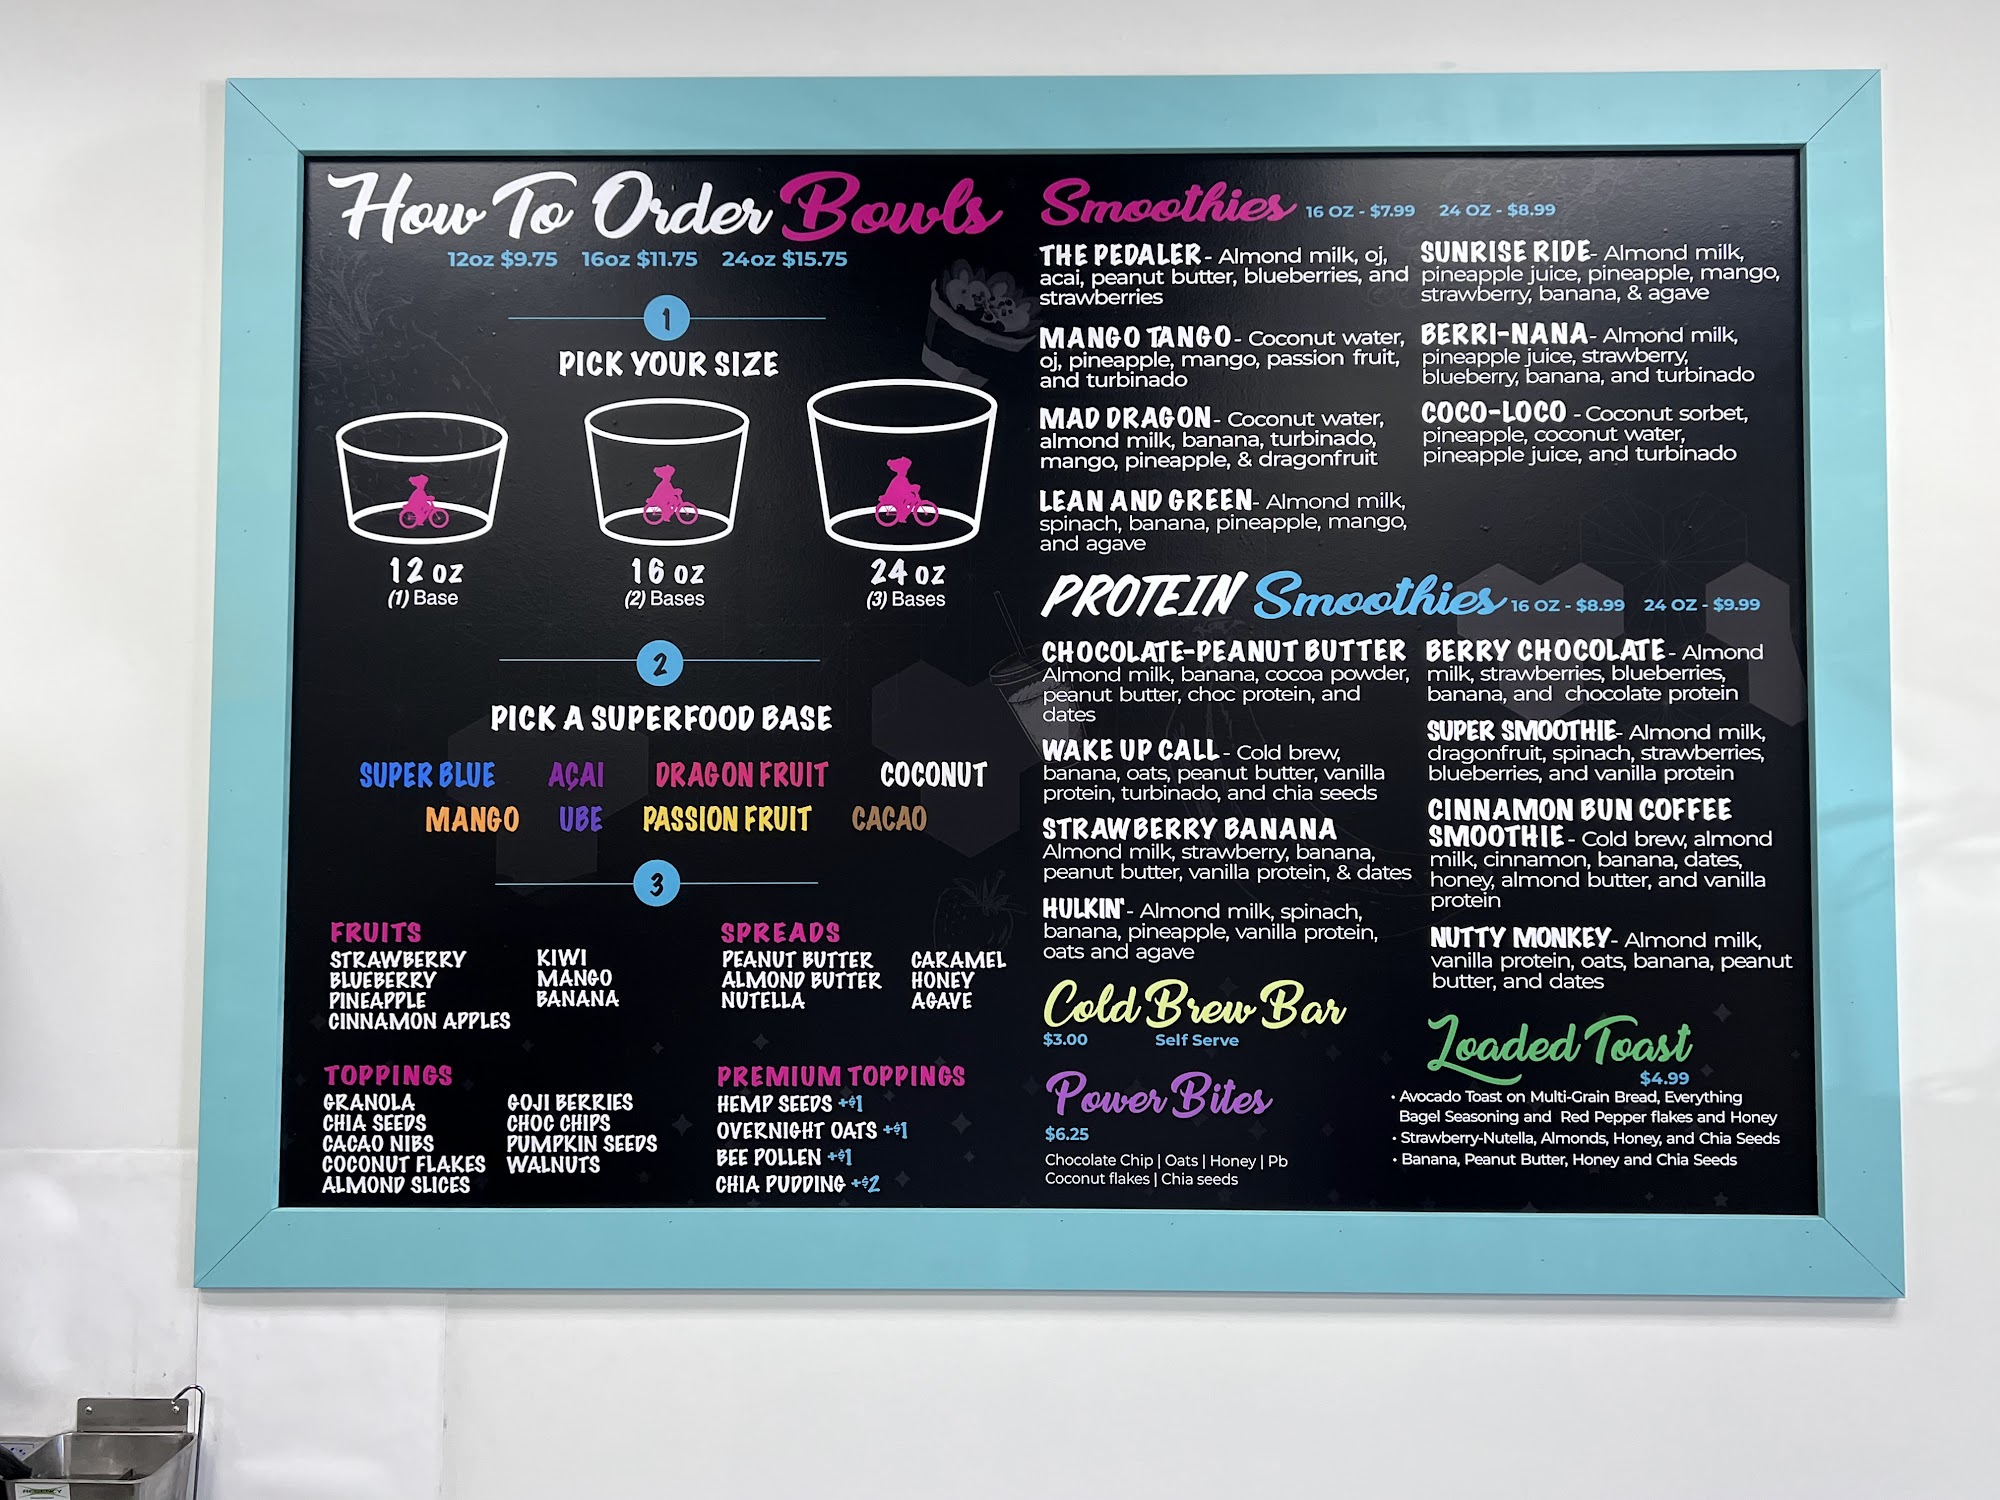 How To Order Bowls
12oz $9.75 16oz $11.75 24oz $15.75
1
PICK YOUR SIZE
12 OZ
(1) Base
16 OZ
(2) Bases
24 OZ
(3) Bases
2
PICK A SUPERFOOD BASE
SUPER BLUE AÇAI DRAGON FRUIT COCONUT
MANGO UBE PASSION FRUIT CACAO
3
FRUITS
STRAWBERRY
BLUEBERRY
PINEAPPLE
CINNAMON APPLES
KIWI
MANGO
BANANA
SPREADS
PEANUT BUTTER
ALMOND BUTTER
NUTELLA
CARAMEL
HONEY
AGAVE
TOPPINGS
GRANOLA
CHIA SEEDS
CACAO NIBS
COCONUT FLAKES
ALMOND SLICES
GOJI BERRIES
CHOC CHIPS
PUMPKIN SEEDS
WALNUTS
PREMIUM TOPPINGS
HEMP SEEDS +$1
OVERNIGHT OATS +$1
BEE POLLEN +$1
CHIA PUDDING +$2
Smoothies 16 OZ - $7.99 24 OZ - $8.99
THE PEDALER - Almond milk, oj,
acai, peanut butter, blueberries, and
strawberries
MANGO TANGO - Coconut water,
oj, pineapple, mango, passion fruit,
and turbinado
MAD DRAGON - Coconut water,
almond milk, banana, turbinado,
mango, pineapple, & dragonfruit
LEAN AND GREEN - Almond milk,
spinach, banana, pineapple, mango,
and agave
SUNRISE RIDE - Almond milk,
pineapple juice, pineapple, mango,
strawberry, banana, & agave
BERRI-NANA - Almond milk,
pineapple juice, strawberry,
blueberry, banana, and turbinado
COCO-LOCO - Coconut sorbet,
pineapple, coconut water,
pineapple juice, and turbinado
PROTEIN Smoothies 16 OZ - $8.99 24 OZ - $9.99
CHOCOLATE-PEANUT BUTTER
Almond milk, banana, cocoa powder,
peanut butter, choc protein, and
dates
WAKE UP CALL - Cold brew,
banana, oats, peanut butter, vanilla
protein, turbinado, and chia seeds
STRAWBERRY BANANA
Almond milk, strawberry, banana,
peanut butter, vanilla protein, & dates
HULKIN' - Almond milk, spinach,
banana, pineapple, vanilla protein,
oats and agave
BERRY CHOCOLATE - Almond
milk, strawberries, blueberries,
banana, and chocolate protein
SUPER SMOOTHIE - Almond milk,
dragonfruit, spinach, strawberries,
blueberries, and vanilla protein
CINNAMON BUN COFFEE
SMOOTHIE - Cold brew, almond
milk, cinnamon, banana, dates,
honey, almond butter, and vanilla
protein
NUTTY MONKEY - Almond milk,
vanilla protein, oats, banana, peanut
butter, and dates
Cold Brew Bar
$3.00 Self Serve
Power Bites
$6.25
Chocolate Chip | Oats | Honey | Pb
Coconut flakes | Chia seeds
Loaded Toast
$4.99
• Avocado Toast on Multi-Grain Bread, Everything
Bagel Seasoning and Red Pepper flakes and Honey
• Strawberry-Nutella, Almonds, Honey, and Chia Seeds
• Banana, Peanut Butter, Honey and Chia Seeds